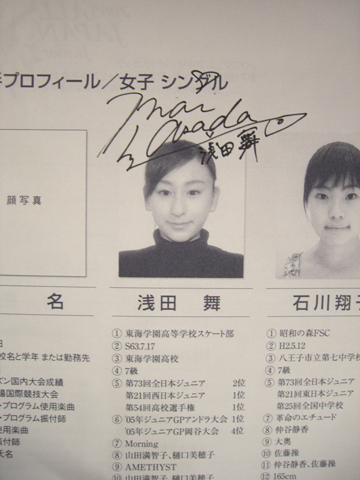 手プロフィール／女子 シングル
Mai Asada
浅田舞
顔写真
名
浅田 舞
石川翔子
① 東海学園高等学校スケート部
② S63.7.17
③ 東海学園高校
④ 7級
⑤ 第73回全日本ジュニア 2位
第21回西日本ジュニア 1位
第54回高校選手権 1位
⑥ '05年ジュニアGPアンドラ大会 1位
'05年ジュニアGP岡谷大会 4位
⑦ Morning
⑧ 山田満智子、樋口美穂子
⑨ AMETHYST
⑩ 山田満智子、樋口美穂子
① 昭和の森FSC
② H2.5.12
③ 八王子市立第七中学校
④ 7級
⑤ 第73回全日本ジュニア
第21回東日本ジュニア
第25回全国中学校
⑦ 革命のエチュード
⑧ 仲谷静香
⑨ 大奥
⑩ 佐藤操
⑪ 仲谷静香、佐藤操
⑫ 165cm
校名と学年 または勤務先
ズン国内大会成績
場国際競技大会
・プログラム使用楽曲
・プログラム振付師
使用楽曲
振付師
氏名